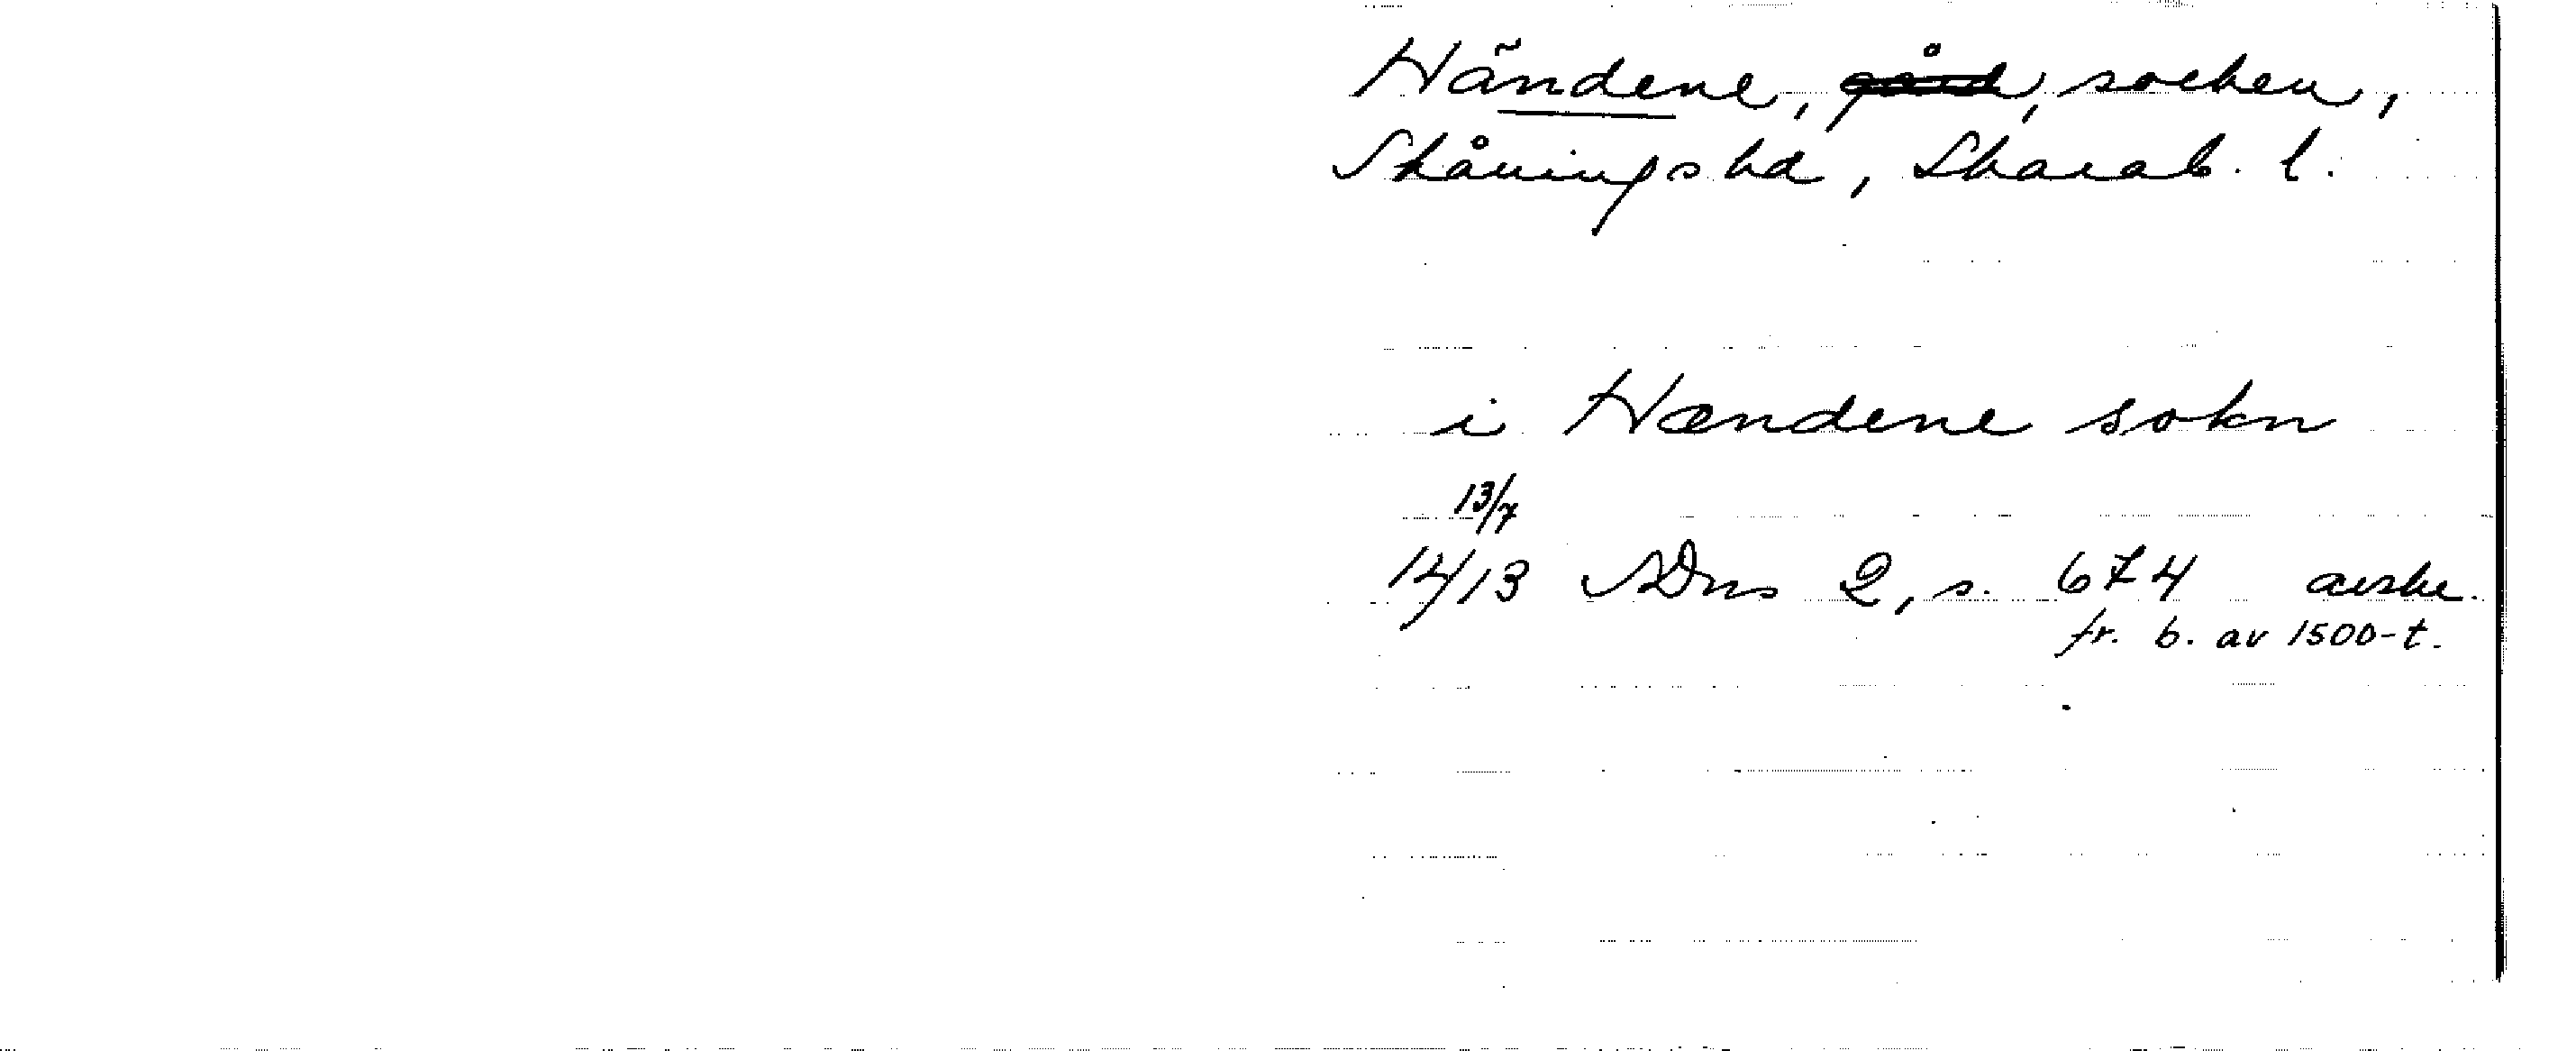 Händene, gård, socken,
Skånings hd, Skarab. l.
i Hændene sokn
13/7
1413 SDns 2, s. 674 avskr.
fr. b. av 1500-t.